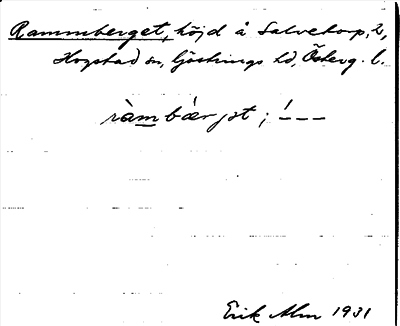 Rammberget, höjd å Salvetorp, 2,
Hogstad sn, Göstrings hd, Österg. l.
ràm bǽrjət ; ⁝ – – –
Erik Alm 1931